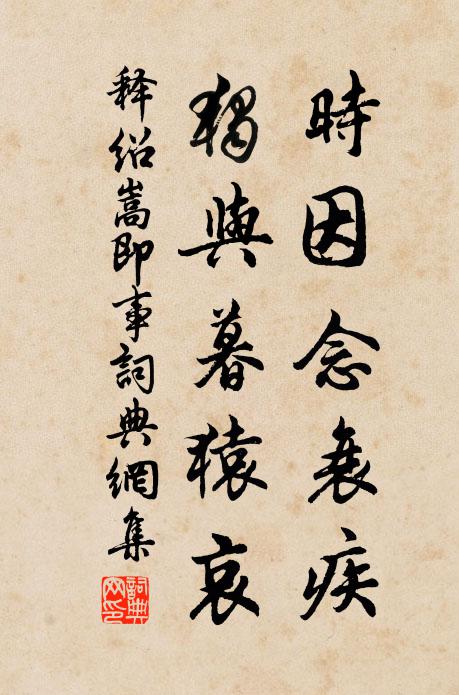 時因念衰疾
獨與暮猿哀
释紹嵩即事詞典網集
詞典網印